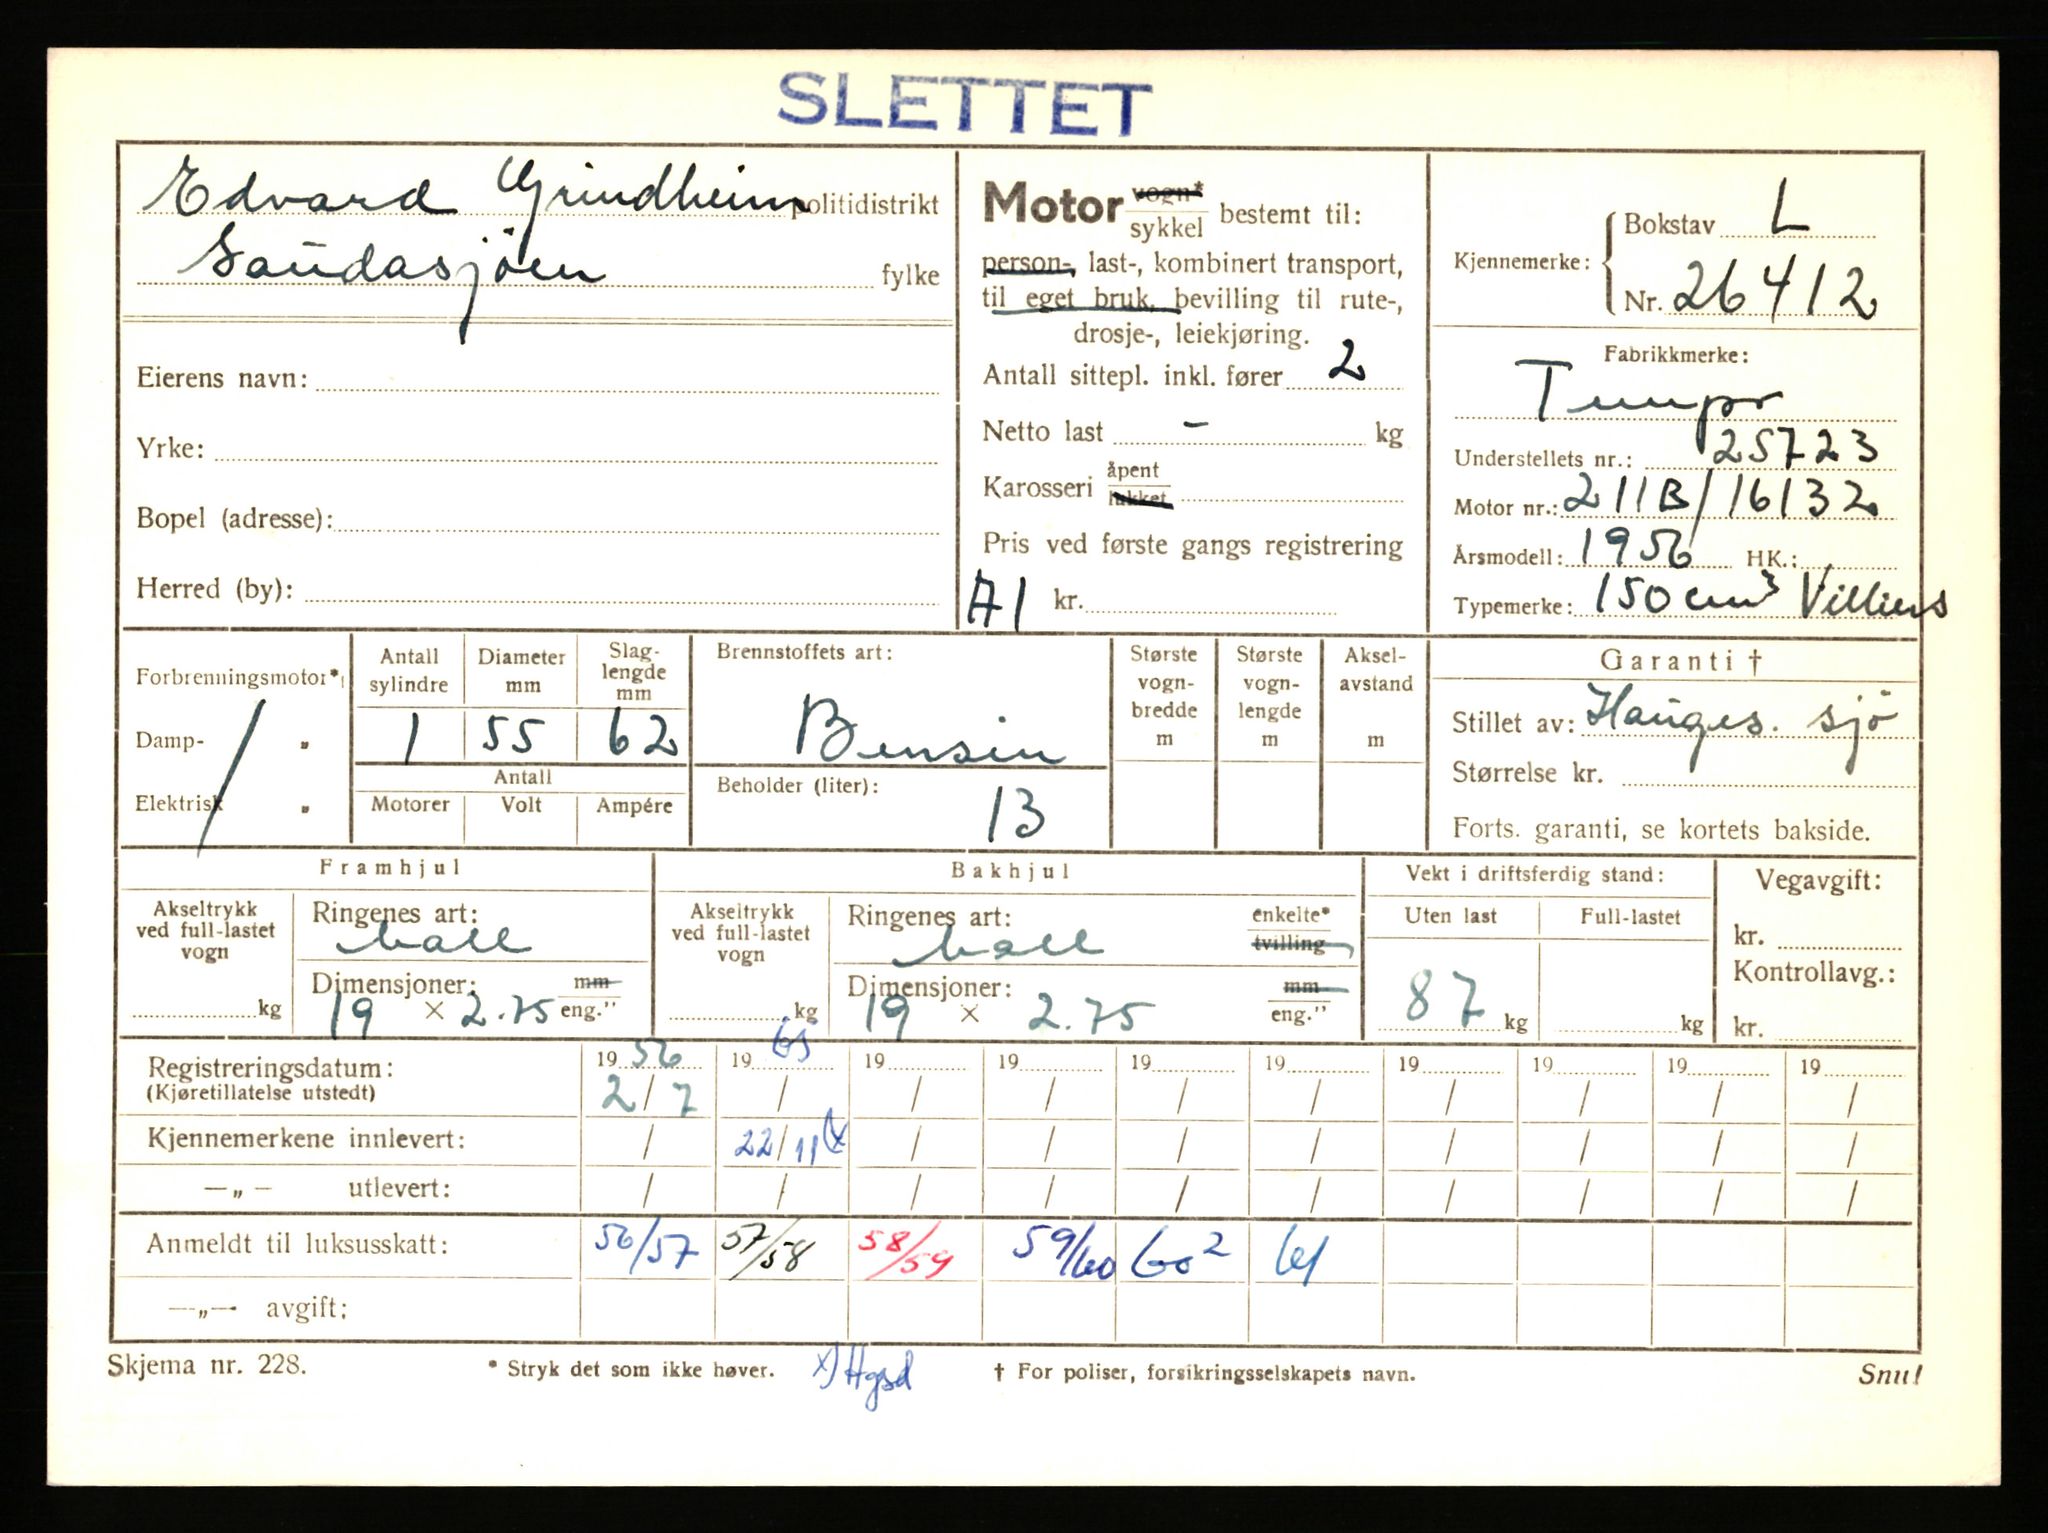 SLETTET
Edvard Grindheim politidistrikt
Saudasjøen fylke
Eierens navn:
Yrke:
Bopel (adresse):
Herred (by):
Motor vogn* / sykkel bestemt til:
person-, last-, kombinert transport,
til eget bruk, bevilling til rute-,
drosje-, leiekjøring.
Antall sittepl. inkl. fører 2
Netto last - kg
Karosseri åpent / lukket
Pris ved første gangs registrering
A1 kr.
Kjennemerke: Bokstav L
Nr. 26412
Fabrikkmerke:
Tempo
Understellets nr.: 25723
Motor nr.: 211B/16132
Årsmodell: 1956 HK.:
Typemerke: 150 cm³ Villiers
Forbrenningsmotor*
Damp- „
Elektrisk „
Antall sylindre 1
Diameter mm 55
Slag-lengde mm 62
Antall
Motorer Volt Ampére
Brennstoffets art:
Bensin
Beholder (liter):
13
Største vogn-bredde m
Største vogn-lengde m
Aksel-avstand m
Garanti †
Stillet av: Hauges. sjø
Størrelse kr.
Forts. garanti, se kortets bakside.
Framhjul
Akseltrykk ved full-lastet vogn
kg
Ringenes art:
ball
Dimensjoner: mm
19 × 2.75 eng."
Bakhjul
Akseltrykk ved full-lastet vogn
kg
Ringenes art: enkelte*
ball tvilling
Dimensjoner: mm
19 × 2.75 eng."
Vekt i driftsferdig stand:
Uten last Full-lastet
87 kg kg
Vegavgift:
kr.
Kontrollavg.:
kr.
Registreringsdatum: 1956 1963 19 19 19 19 19 19 19 19
(Kjøretillatelse utstedt) 2/7 / / / / / / / / /
Kjennemerkene innlevert: / 22/11 (x / / / / / / / /
—„— utlevert: / / / / / / / / / /
Anmeldt til luksusskatt: 56/57 57/58 58/59 59/60 60² 61
—„— avgift:
Skjema nr. 228. * Stryk det som ikke høver. x) Hgsd † For poliser, forsikringsselskapets navn. Snu!